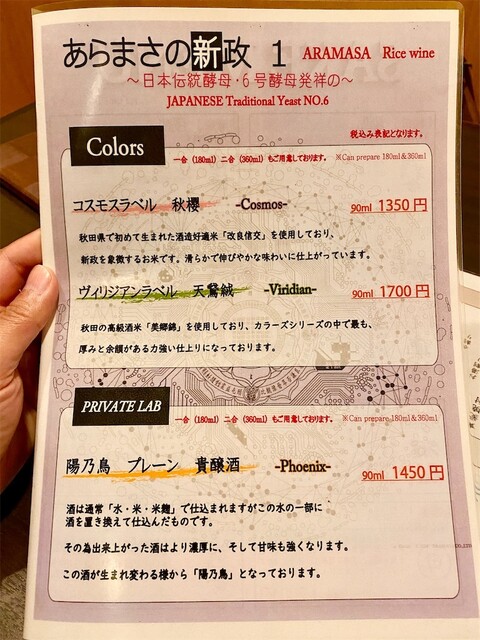 あらまさの新政 1 ARAMASA Rice wine
～日本伝統酵母・6号酵母発祥の～
JAPANESE Traditional Yeast NO.6
税込み表記となります。
Colors
一合 (180ml) 二合 (360ml) もご用意しております。 ※Can prepare 180ml＆360ml
コスモスラベル 秋櫻 -Cosmos- 90ml 1350円
秋田県で初めて生まれた酒造好適米「改良信交」を使用しており、
新政を象徴するお米です。滑らかで伸びやかな味わいに仕上がっています。
ヴィリジアンラベル 天鵞絨 -Viridian- 90ml 1700円
秋田の高級酒米「美郷錦」を使用しており、カラーズシリーズの中で最も、
厚みと余韻がある力強い仕上りになっております。
PRIVATE LAB
一合 (180ml) 二合 (360ml) もご用意しております。 ※Can prepare 180ml＆360ml
陽乃鳥 プレーン 貴醸酒 -Phoenix- 90ml 1450円
酒は通常「水・米・米麹」で仕込まれますがこの水の一部に
酒を置き換えて仕込んだものです。
その為出来上がった酒はより濃厚に、そして甘味も強くなります。
この酒が生まれ変わる様から「陽乃鳥」となっております。